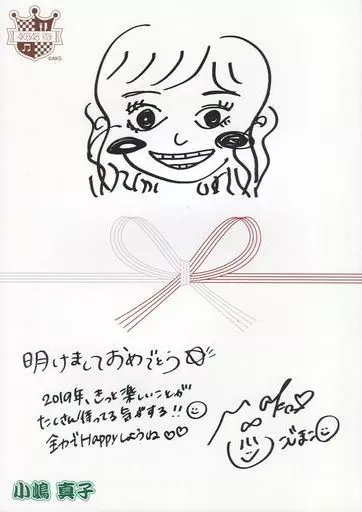 AKB48
©AKS
明けましておめでとう
2019年、きっと楽しいことが
たくさん待ってる気がする!!
全力でHappyしようね♡♡
Mako♡
こじまこ
小嶋 真子